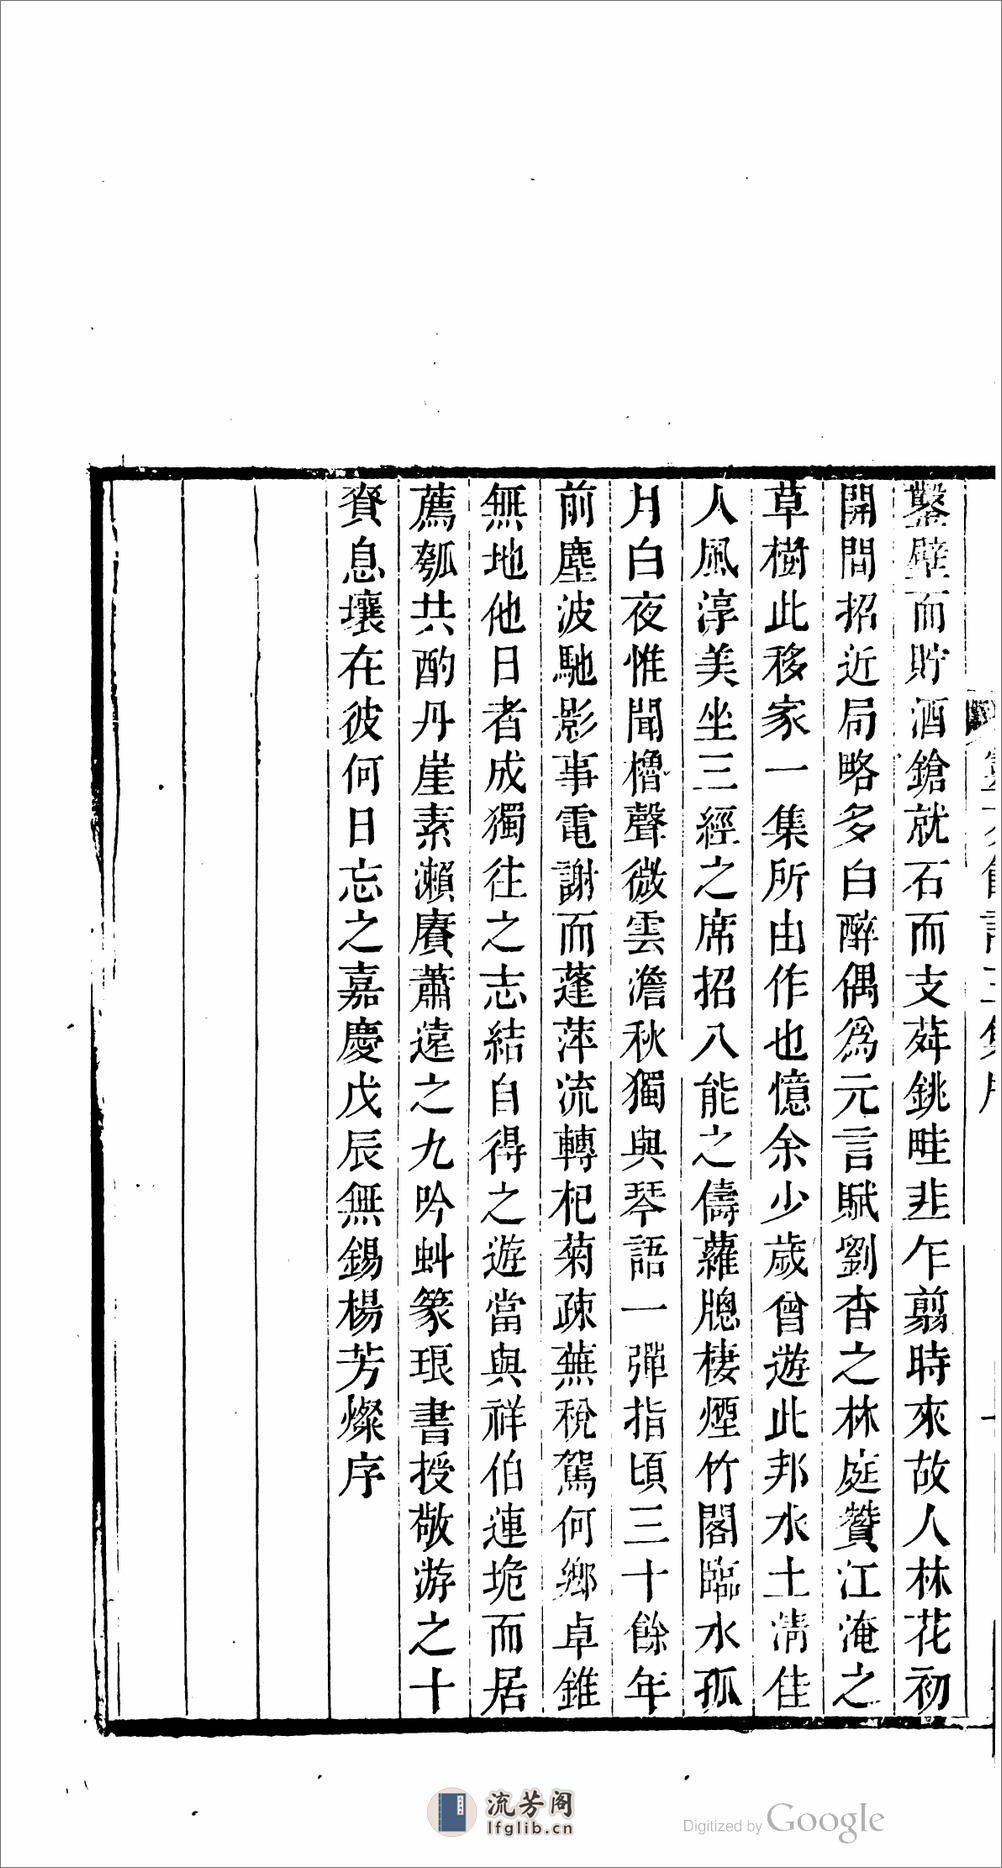 鑿壁而貯酒鎗就石而支蕣銚畦韭乍翦時來故人林花初
開間招近局略多白醉偶爲元言賦劉杳之林庭贊江淹之
草樹此移家一集所由作也憶余少歲曾遊此邦水土清佳
人風淳美坐三經之席招八能之儔蘿牕棲煙竹閣臨水孤
月白夜惟聞櫓聲微雲澹秋獨與琴語一彈指頃三十餘年
前塵波馳影事電謝而蓬萍流轉杞菊疎蕪稅駕何鄉卓錐
無地他日者成獨往之志結自得之遊當與祥伯連垝而居
薦瓠共酌丹崖素瀨賡蕭遠之九吟蚪篆琅書授敬游之十
賚息壤在彼何日忘之嘉慶戊辰無錫楊芳燦序
流芳阁
lfglib.cn
Digitized by Google